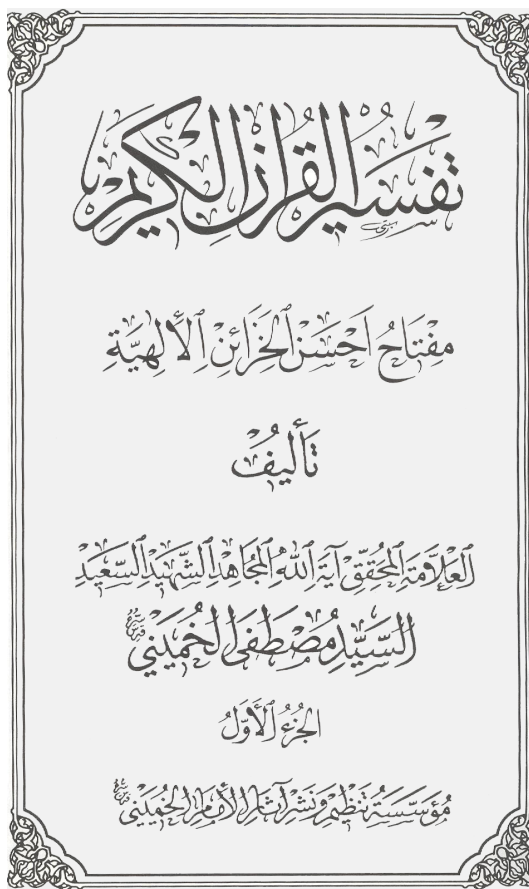 تَفسيرُ القُرآنِ الكَريمِ
مِفتَاحُ اَحسَنِ الخَزائِنِ الإلٰهِيَّةِ
تأليفُ
العَلاّمَةِ المُحَقِّقِ آيَةِ اللهِ المُجاهِدِ الشَّهيدِ السَّعيدِ
السَّيِّدِ مُصطَفَى الخُمَينيِّ
الجُزءُ الأَوَّلُ
مُؤَسَّسَةُ تَنظيمِ وَنَشرِ آثارِ الإمامِ الخُمَينيِّ